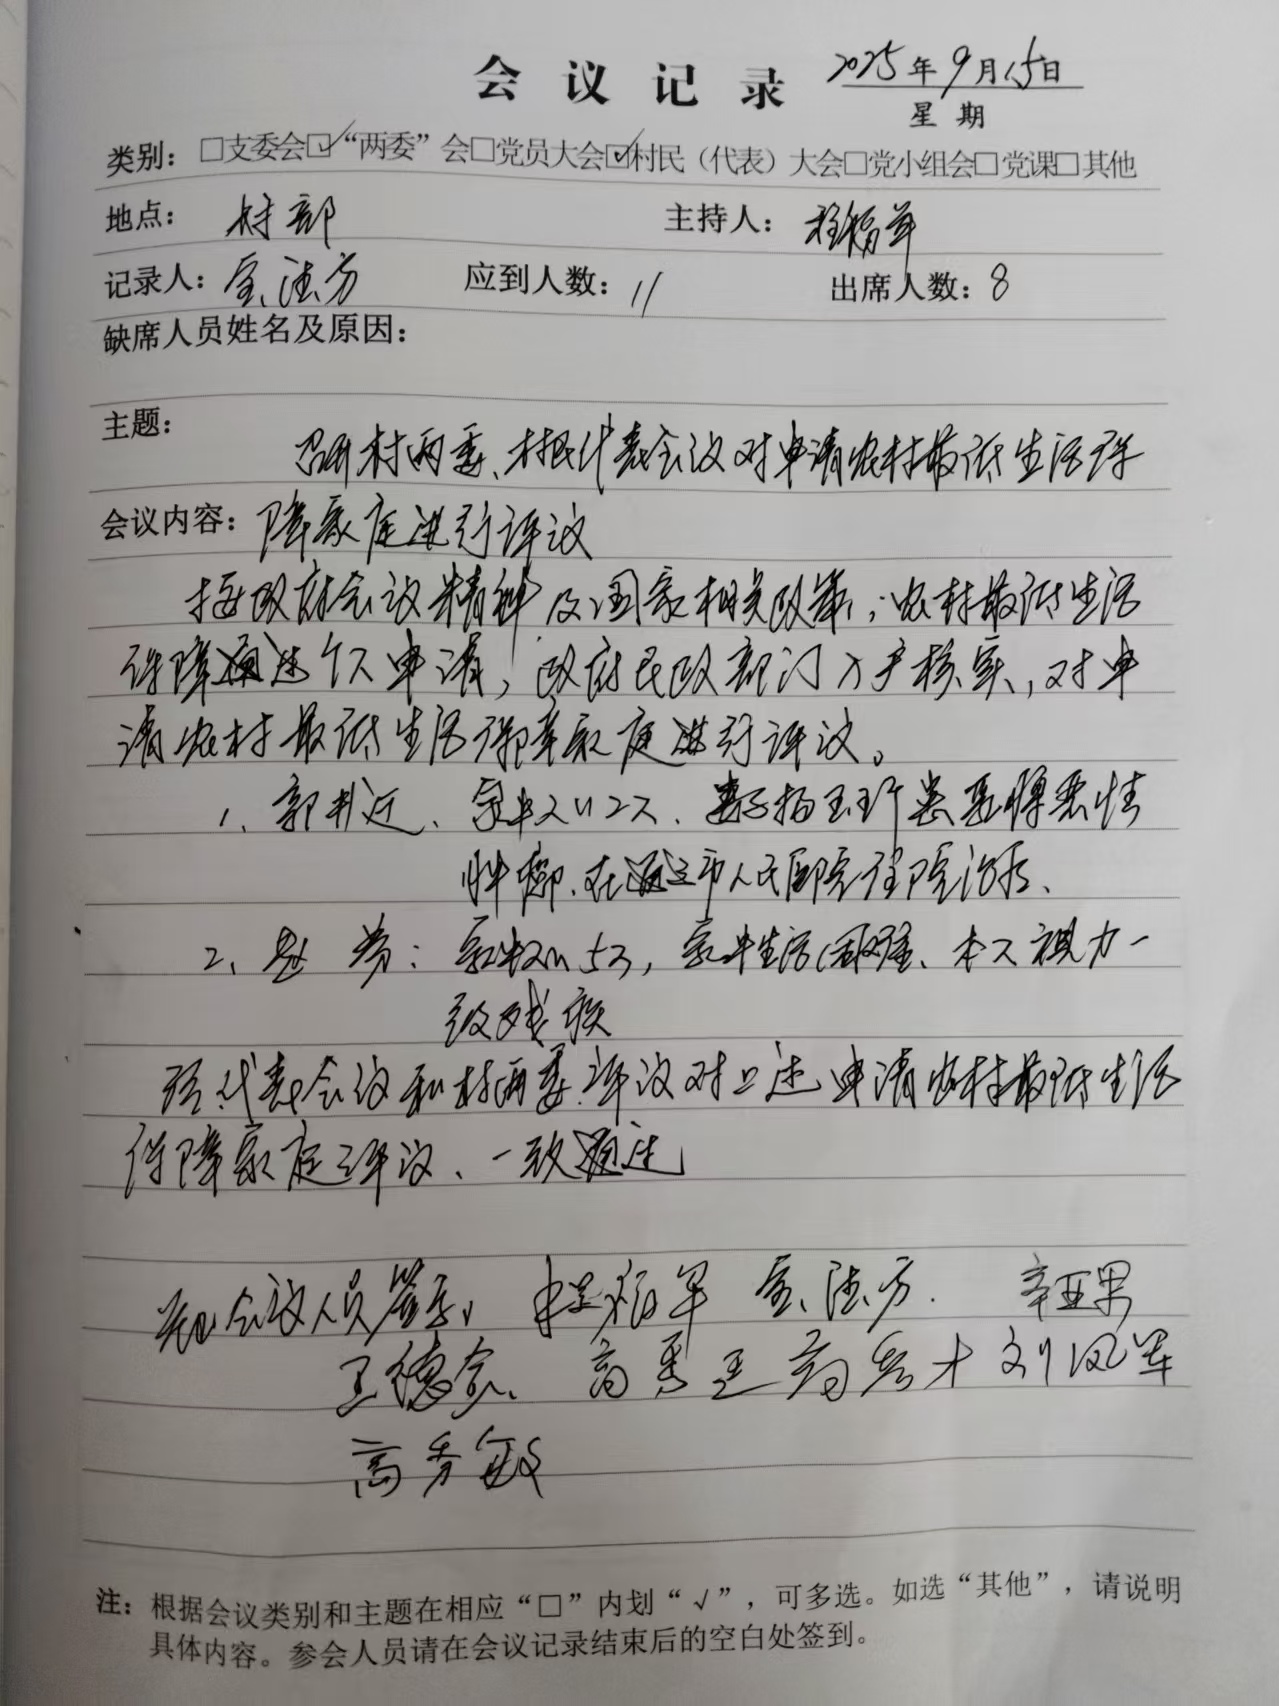 会议记录 2025年9月15日
星期
类别：□支委会☑“两委”会□党员大会☑村民（代表）大会□党小组会□党课□其他
地点：村部 主持人：程福军
记录人：金法方 应到人数：11 出席人数：8
缺席人员姓名及原因：
主题：
召开村两委、村民代表会议对申请农村最低生活保
会议内容：障家庭进行评议
按政府会议精神及国家相关政策，农村最低生活
保障通过个人申请，政府民政部门入户核实，对申
请农村最低生活保障家庭进行评议。
1、郭 家中人口2人、妻子杨玉玲患 恶性
肿瘤、在通辽市人民医院住院治疗、
2、赵 芳：家中人口5人，家中生活困难、本人视力一
级残疾
经代表会议和村两委评议对上述申请农村最低生活
保障家庭评议、一致通过
参加会议人员签字、程福军 金法方 辛亚男
王德 高秀 高秀才 刘凤军
高秀敏
注：根据会议类别和主题在相应“□”内划“√”，可多选。如选“其他”，请说明
具体内容。参会人员请在会议记录结束后的空白处签到。